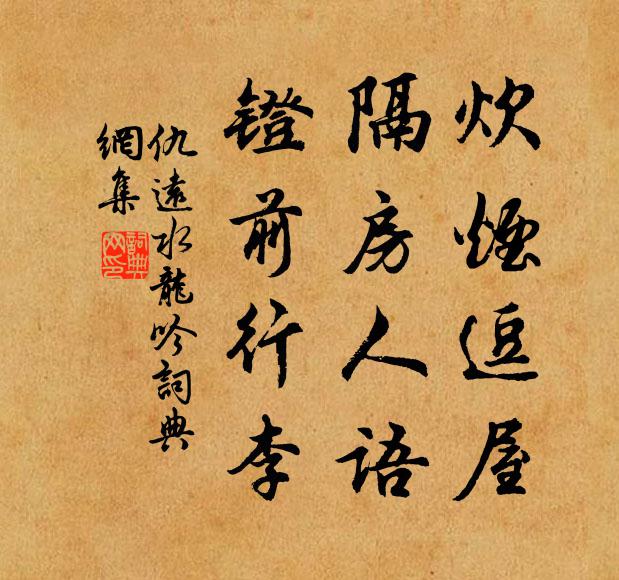 炊煙逗屋
隔房人語
鐙前行李
仇遠水龍吟詞典
網集
詞典
网印